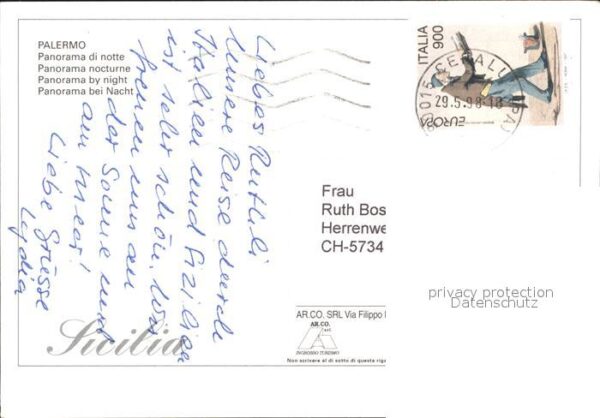 PALERMO
Panorama di notte
Panorama nocturne
Panorama by night
Panorama bei Nacht
Liebes Ruthli
Unsere Reise durch
Italien und Sizilien
ist sehr schön. Wir
freuen uns an
der Sonne und
am Meer!
Liebe Grüsse
Lydia
ITALIA
900
EUROPA
90015 CEFALU (PA)
29.5.98-18
Frau
Ruth Bos
Herrenwe
CH-5734
privacy protection
Datenschutz
AR.CO. SRL Via Filippo
AR.CO.
INGROSSO TURISMO
Non scrivere al di sotto di questa riga
Sicilia